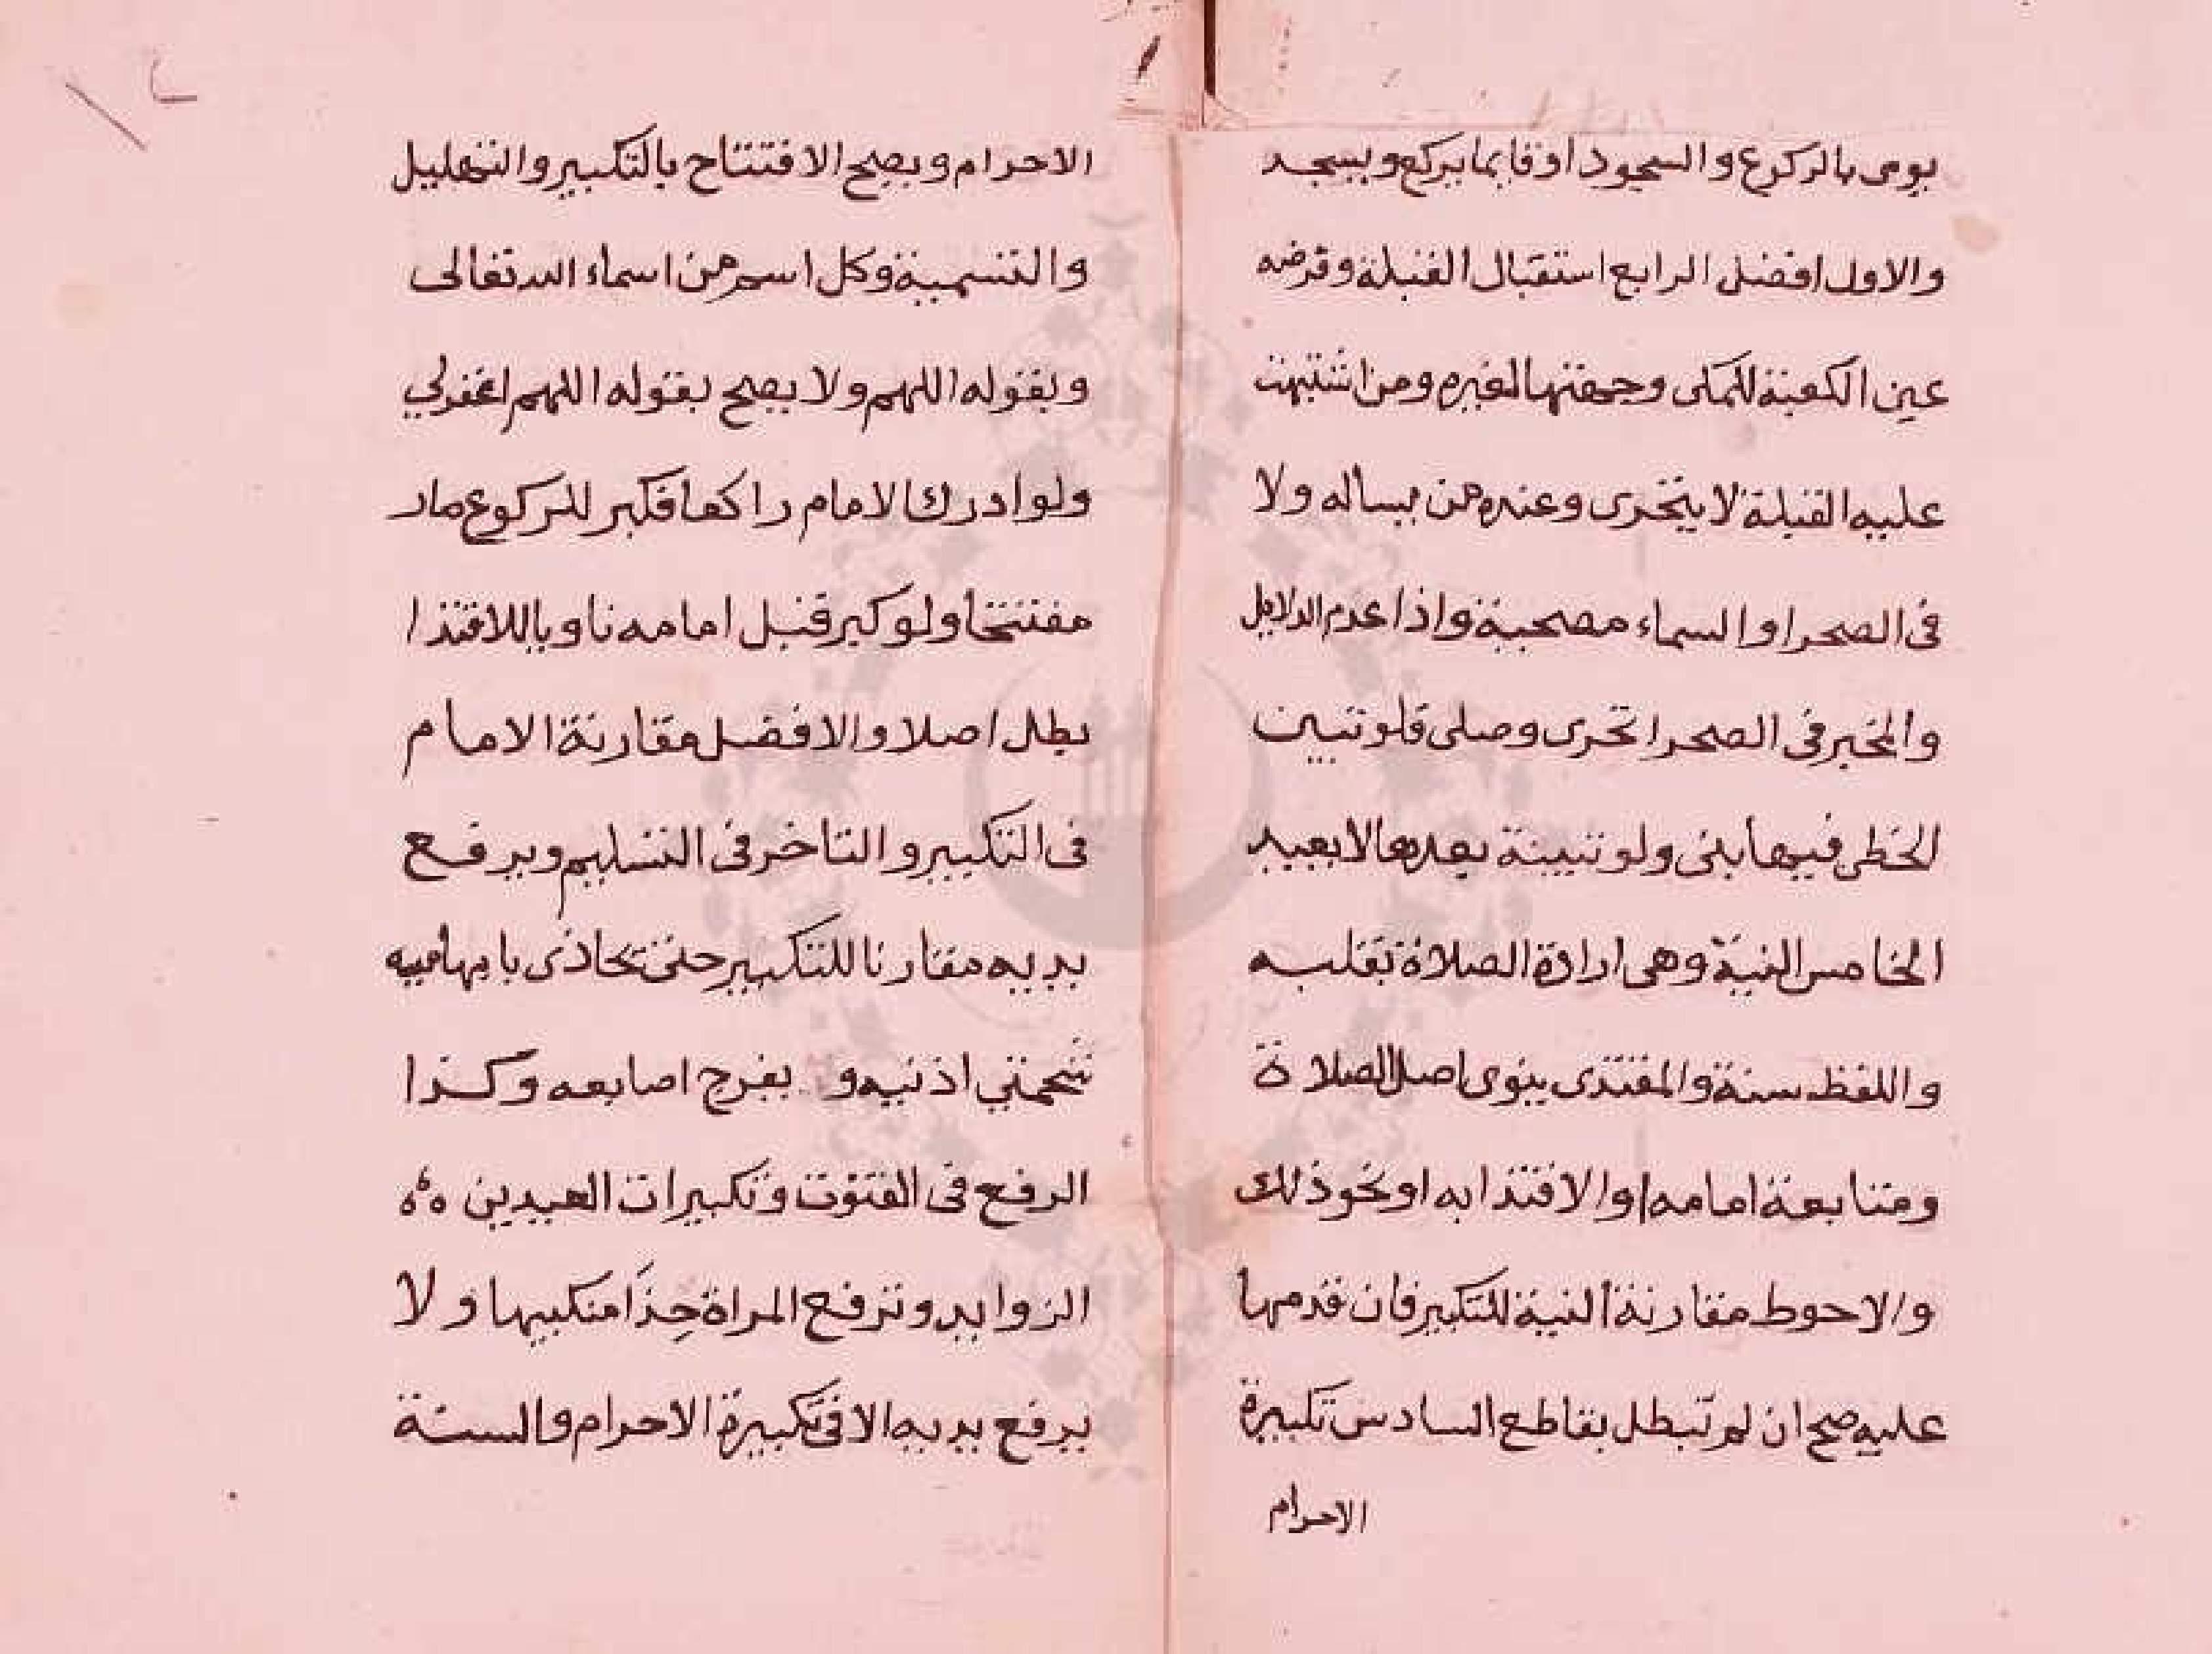 يومى بالركوع والسجود اوقايما يركع ويسجد
والاول افضل الرابع استقبال القبلة وفرضه
عين الكعبة للمكى وجهتها لغيره ومن اشتبهت
عليه القبلة لا يتحرى وعنده من يساله ولا
فى الصحرا والسماء مصحية واذا عدم الدلايل
والمخبر فى الصحرا تحرى وصلى فلو تبين
الخطى فيها بنى ولو تبينة بعدها لا يعيد
الخامس النية وهى ارادة الصلاة بقلبه
واللفظ سنة والمقتدى ينوى اصل الصلاة
ومتابعة امامه او الاقتدا به او نحو ذلك
والاحوط مقارنة النية للتكبير فان قدمها
عليه صح ان لم تبطل بقاطع السادس تكبيرة
الاحرام
الاحرام ويصح الافتتاح بالتكبير والتهليل
والتسمية وكل اسم من اسماء الله تعالى
وبقوله اللهم ولا يصح بقوله اللهم اغفرلي
ولو ادرك الامام راكعا فكبر للركوع صار
مفتتحا ولو كبر قبل امامه ناويا للاقتدا
بطل اصلا والافضل مقارنة الامام
فى التكبير والتاخر فى التسليم ويرفع
يديه مقارنا للتكبير حتى تحاذى بابهاميه
شحمتي اذنيه و يفرج اصابعه وكذا
الرفع فى القنوت وتكبيرات العيدين
الزوايد وترفع المراة حِذَا منكبيها ولا
يرفع يديه الا فى تكبيرة الاحرام والسنة